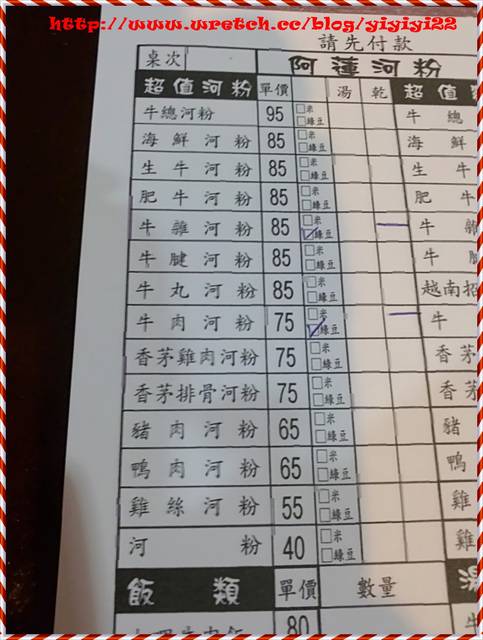 http://www.wretch.cc/blog/yiyiyi22
請先付款
桌次 阿蓮河粉
超值河粉 單價 湯 乾 超值
牛總河粉 95 □米 □綠豆 牛 總
海鮮河粉 85 □米 □綠豆 海 鮮
生牛河粉 85 □米 □綠豆 生 牛
肥牛河粉 85 □米 □綠豆 肥 牛
牛雜河粉 85 □米 ☑綠豆 牛 雜
牛腱河粉 85 □米 □綠豆 牛 腱
牛丸河粉 85 □米 □綠豆 越南招
牛肉河粉 75 □米 ☑綠豆 牛
香茅雞肉河粉 75 □米 □綠豆 香茅
香茅排骨河粉 75 □米 □綠豆 香茅
豬肉河粉 65 □米 □綠豆 豬
鴨肉河粉 65 □米 □綠豆 鴨
雞絲河粉 55 □米 □綠豆 雞
河粉 40 □米 □綠豆 雞
飯類 單價 數量 湯
80 牛